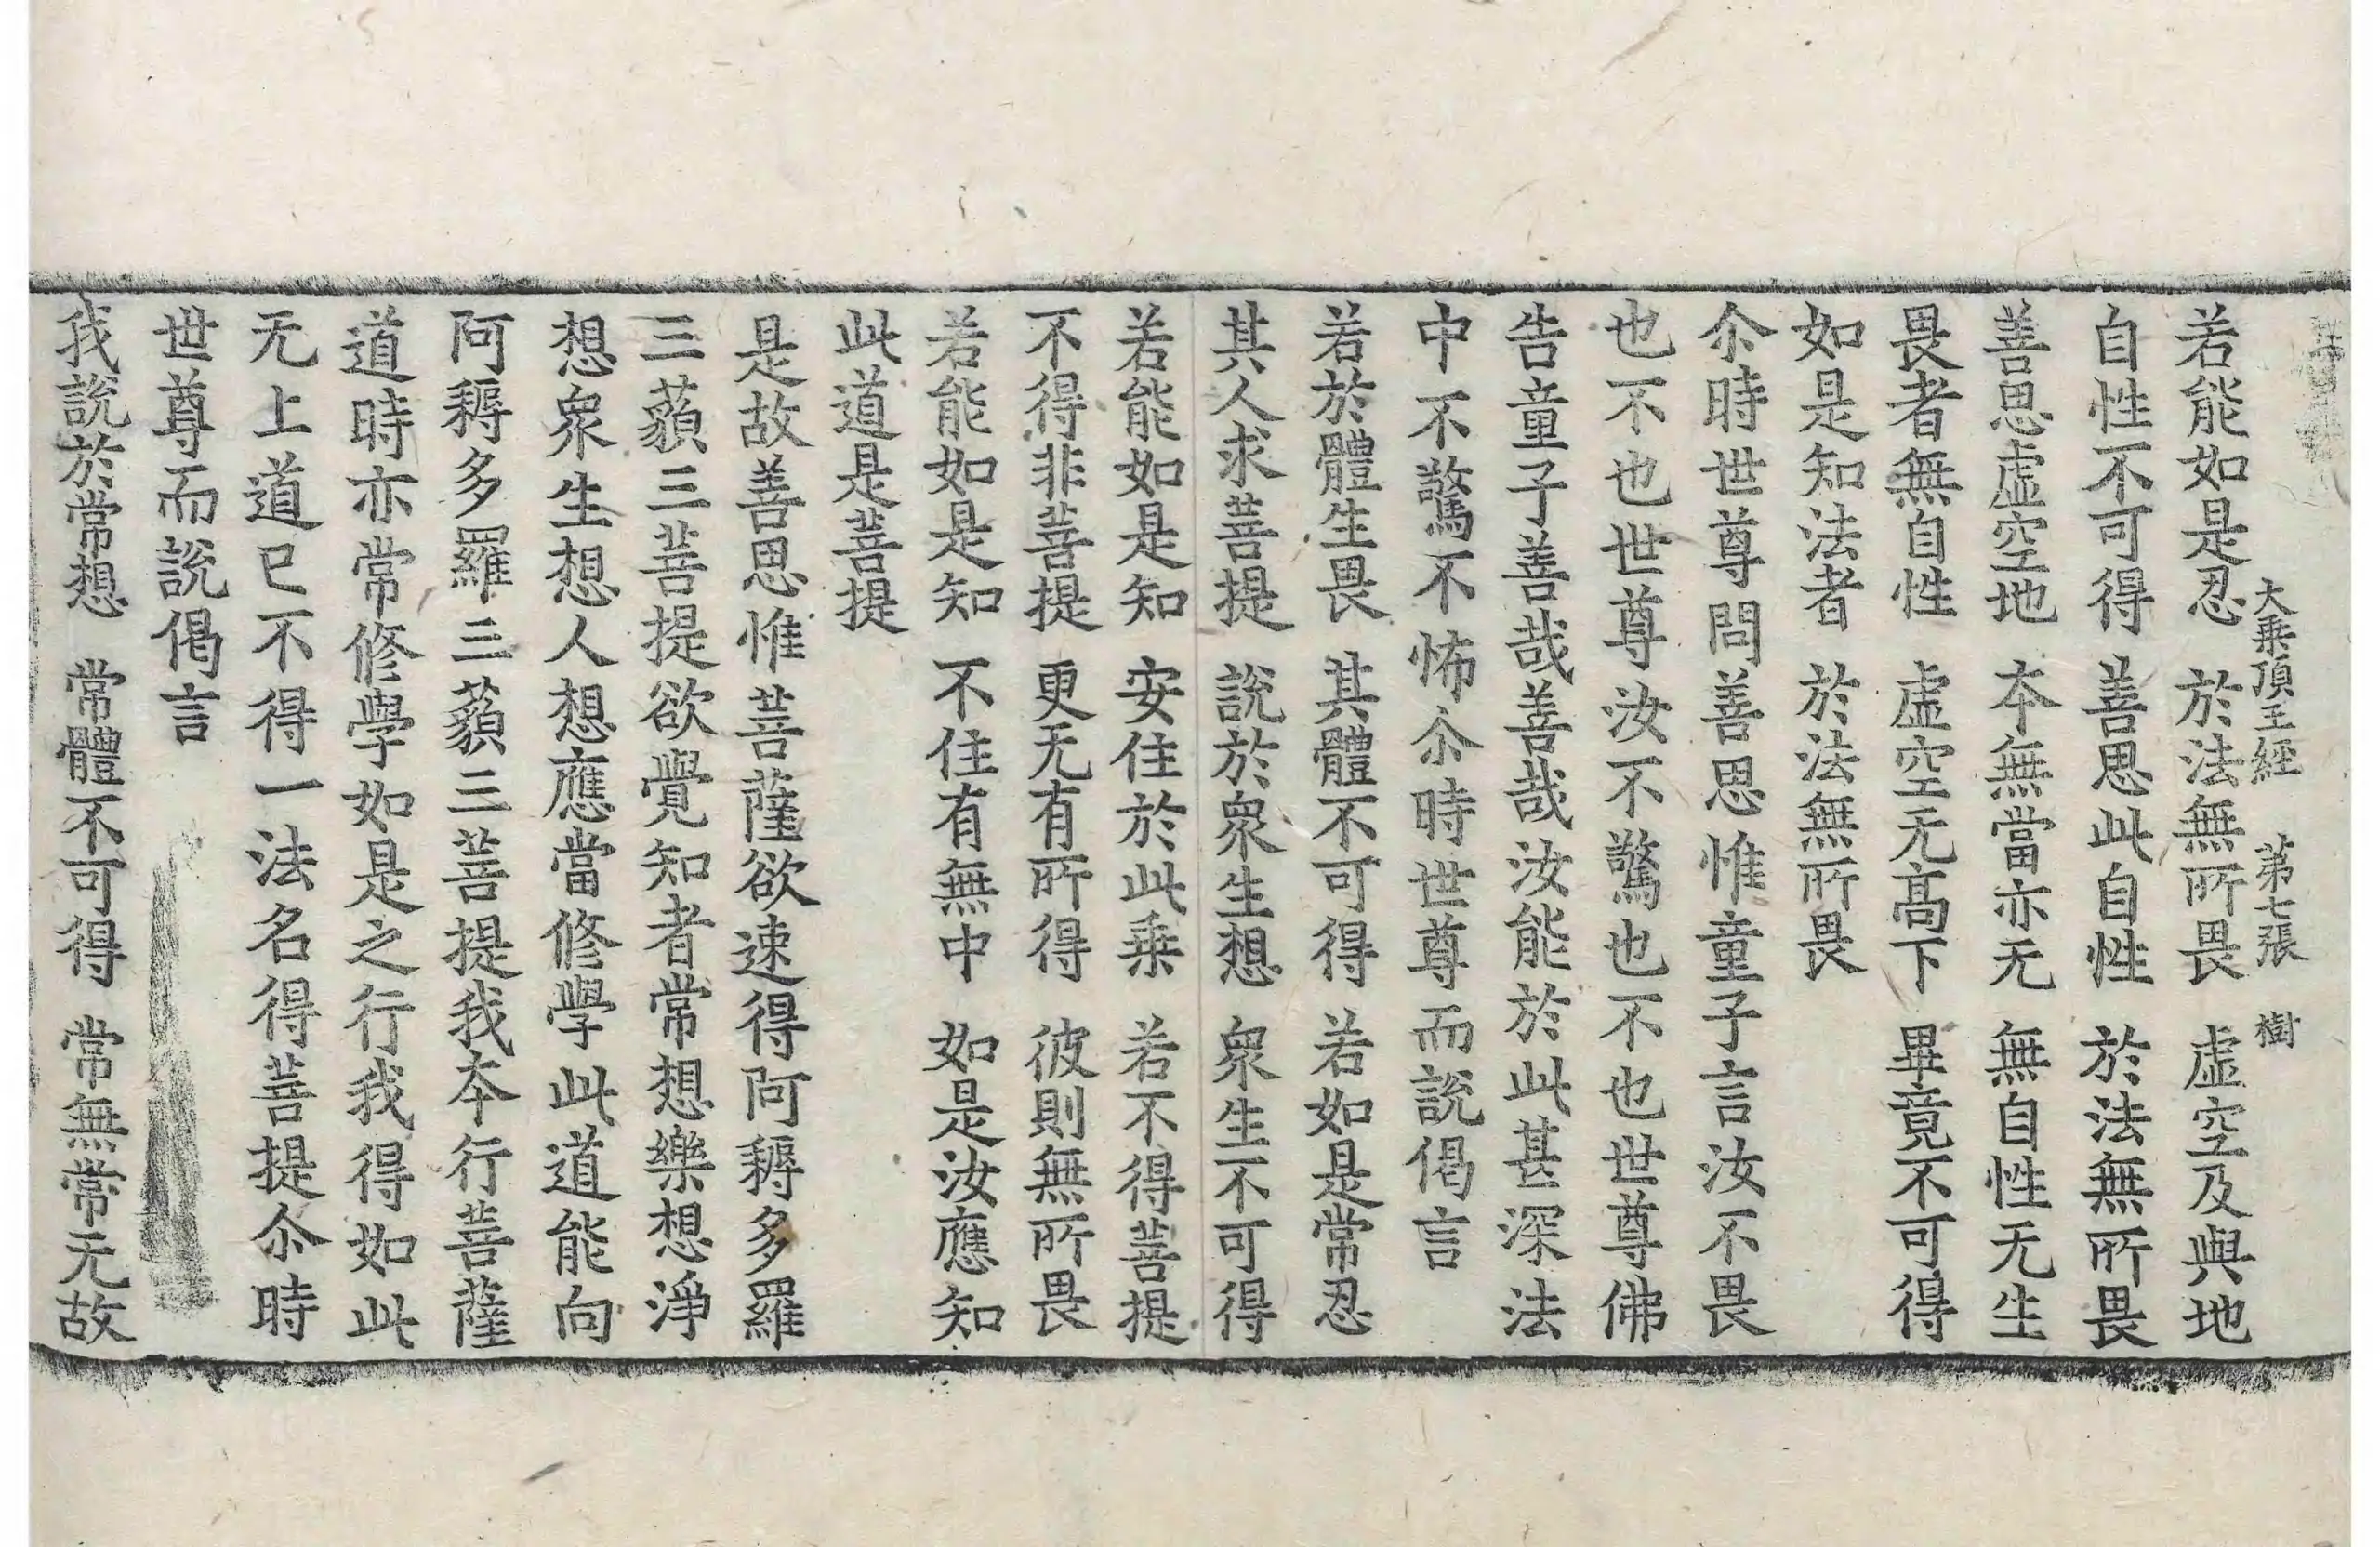 大乘頂王經 第七張 樹
若能如是忍 於法無所畏 虛空及與地
自性不可得 善思此自性 於法無所畏
善思虛空地 本無當亦无 無自性无生
畏者無自性 虛空无高下 畢竟不可得
如是知法者 於法無所畏
尒時世尊問善思惟童子言汝不畏
也不也世尊汝不驚也不也世尊佛
告童子善哉善哉汝能於此甚深法
中不驚不怖尒時世尊而說偈言
若於體生畏 其體不可得 若如是常忍
其人求菩提 說於衆生想 衆生不可得
若能如是知 安住於此乘 若不得菩提
不得非菩提 更无有所得 彼則無所畏
若能如是知 不住有無中 如是汝應知
此道是菩提
是故善思惟菩薩欲速得阿耨多羅
三藐三菩提欲覺知者常想樂想淨
想衆生想人想應當修學此道能向
阿耨多羅三藐三菩提我本行菩薩
道時亦常修學如是之行我得如此
无上道已不得一法名得菩提尒時
世尊而說偈言
我說於常想 常體不可得 常無常无故